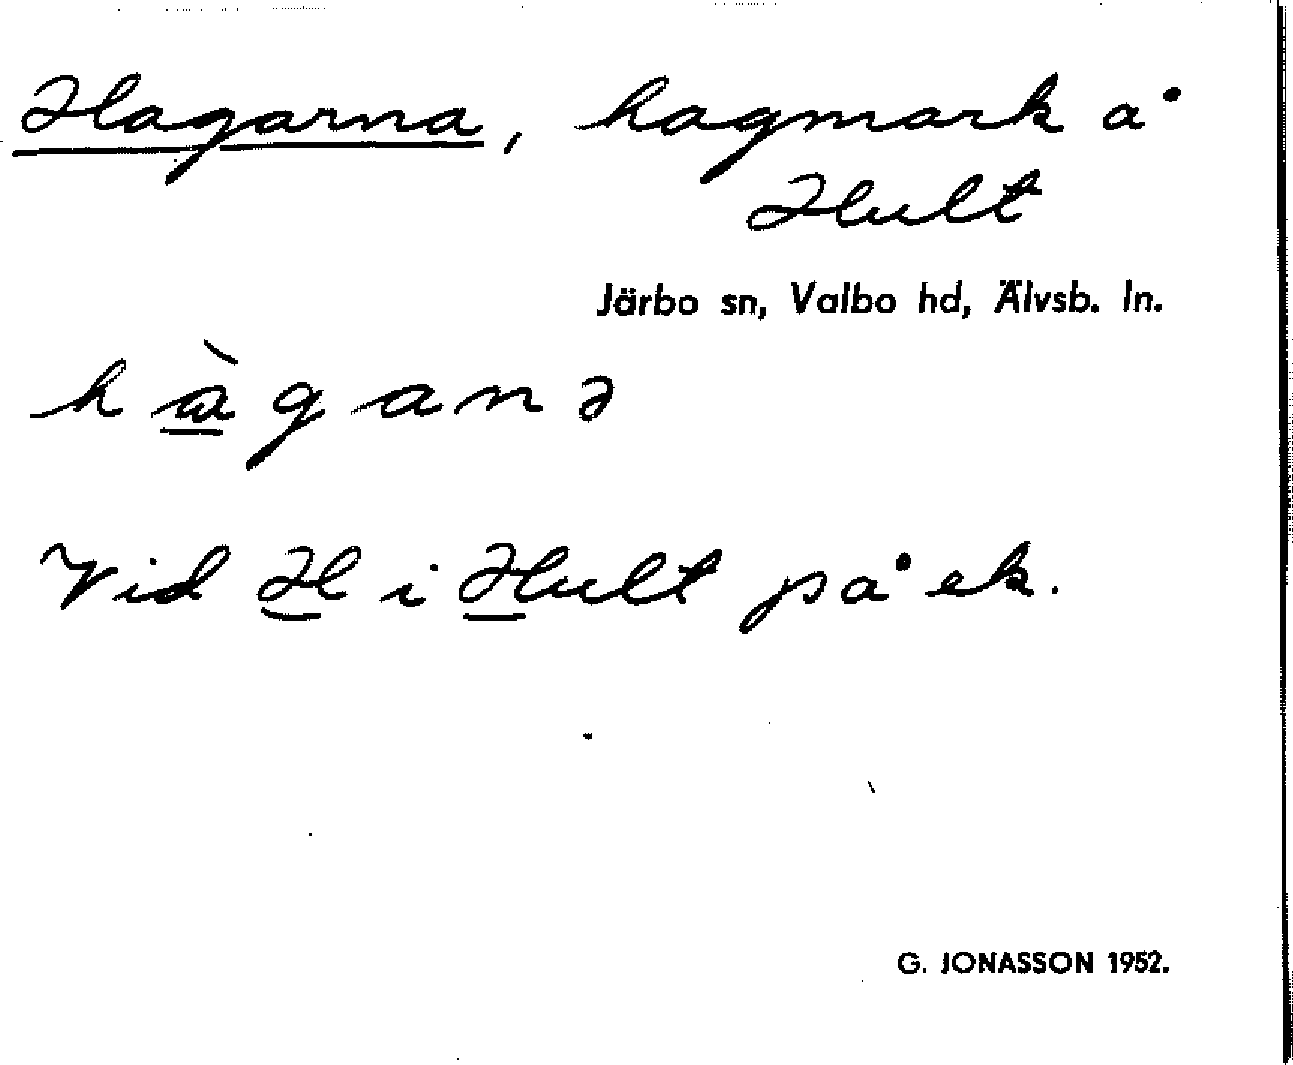 Hagarna, hagmark å
Hult
Järbo sn, Valbo hd, Älvsb. ln.
hàganə
Vid H i Hult på ek.
G. JONASSON 1952.